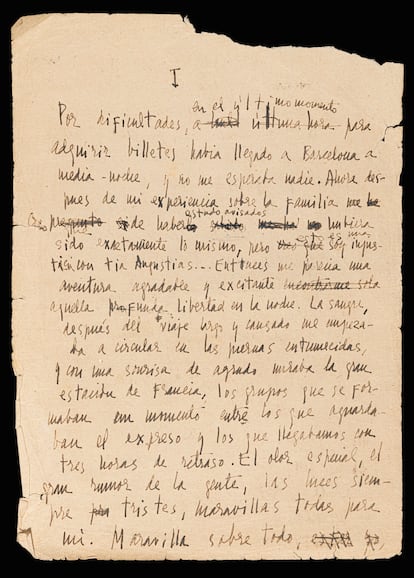 I
en el últi mo momento
Por dificultades, a última hora para
adquirir billetes había llegado a Barcelona a
media-noche, y no me esperaba nadie. Ahora des-
pues de mi experiencia sobre la familia me he
estado avisados
pregunto si de haber no hubiera
sido exactamente lo mismo, pero esto es una injus-
ticia con tia Angustias... Entonces me parecia una
aventura agradable y excitante encontrarme sola
aquella profunda libertad en la noche. La sangre,
después del viaje largo y cansado me empeza-
ba a circular en las piernas entumecidas,
y con una sonrisa de agrado miraba la gran
estación de Francia, los grupos que se for-
maban en momento entre los que aguarda-
ban el expreso y los que llegabamos con
tres horas de retraso. El olor especial, el
gran rumor de la gente, las luces siem-
pre tristes, maravillas todas para
mi. Maravilla sobre todo,